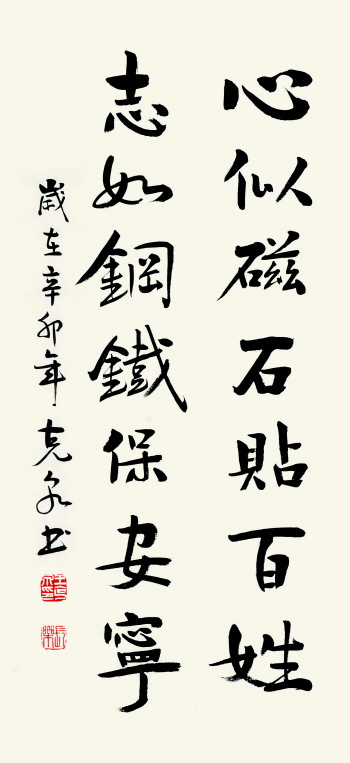 心似磁石貼百姓
志如鋼鐵保安寧
歲在辛卯年克泉书